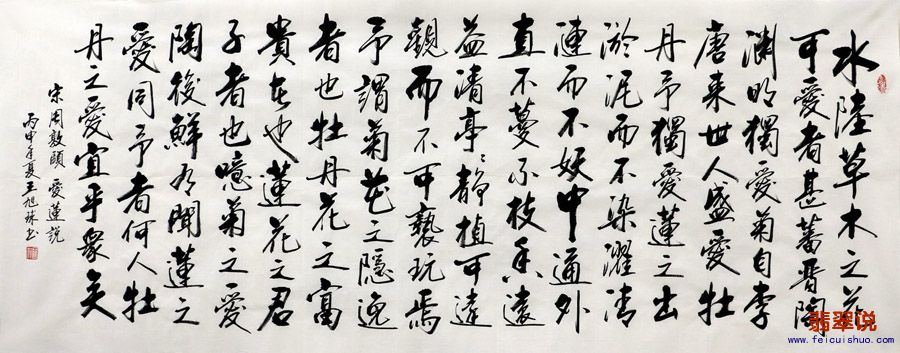 水陸草木之花
可愛者甚蕃晋陶
渊明獨愛菊自李
唐来世人盛愛牡
丹予獨愛蓮之出
淤泥而不染濯清
漣而不妖中通外
直不蔓不枝香遠
益清亭〻静植可遠
觀而不可褻玩焉
予謂菊花之隱逸
者也牡丹花之富
貴者也蓮花之君
子者也噫菊之愛
陶後鮮有聞蓮之
愛同予者何人牡
丹之愛宜乎衆矣
宋周敦頤 愛蓮説
丙申年夏王旭珠书
翡翠说
www.feicuishuo.com